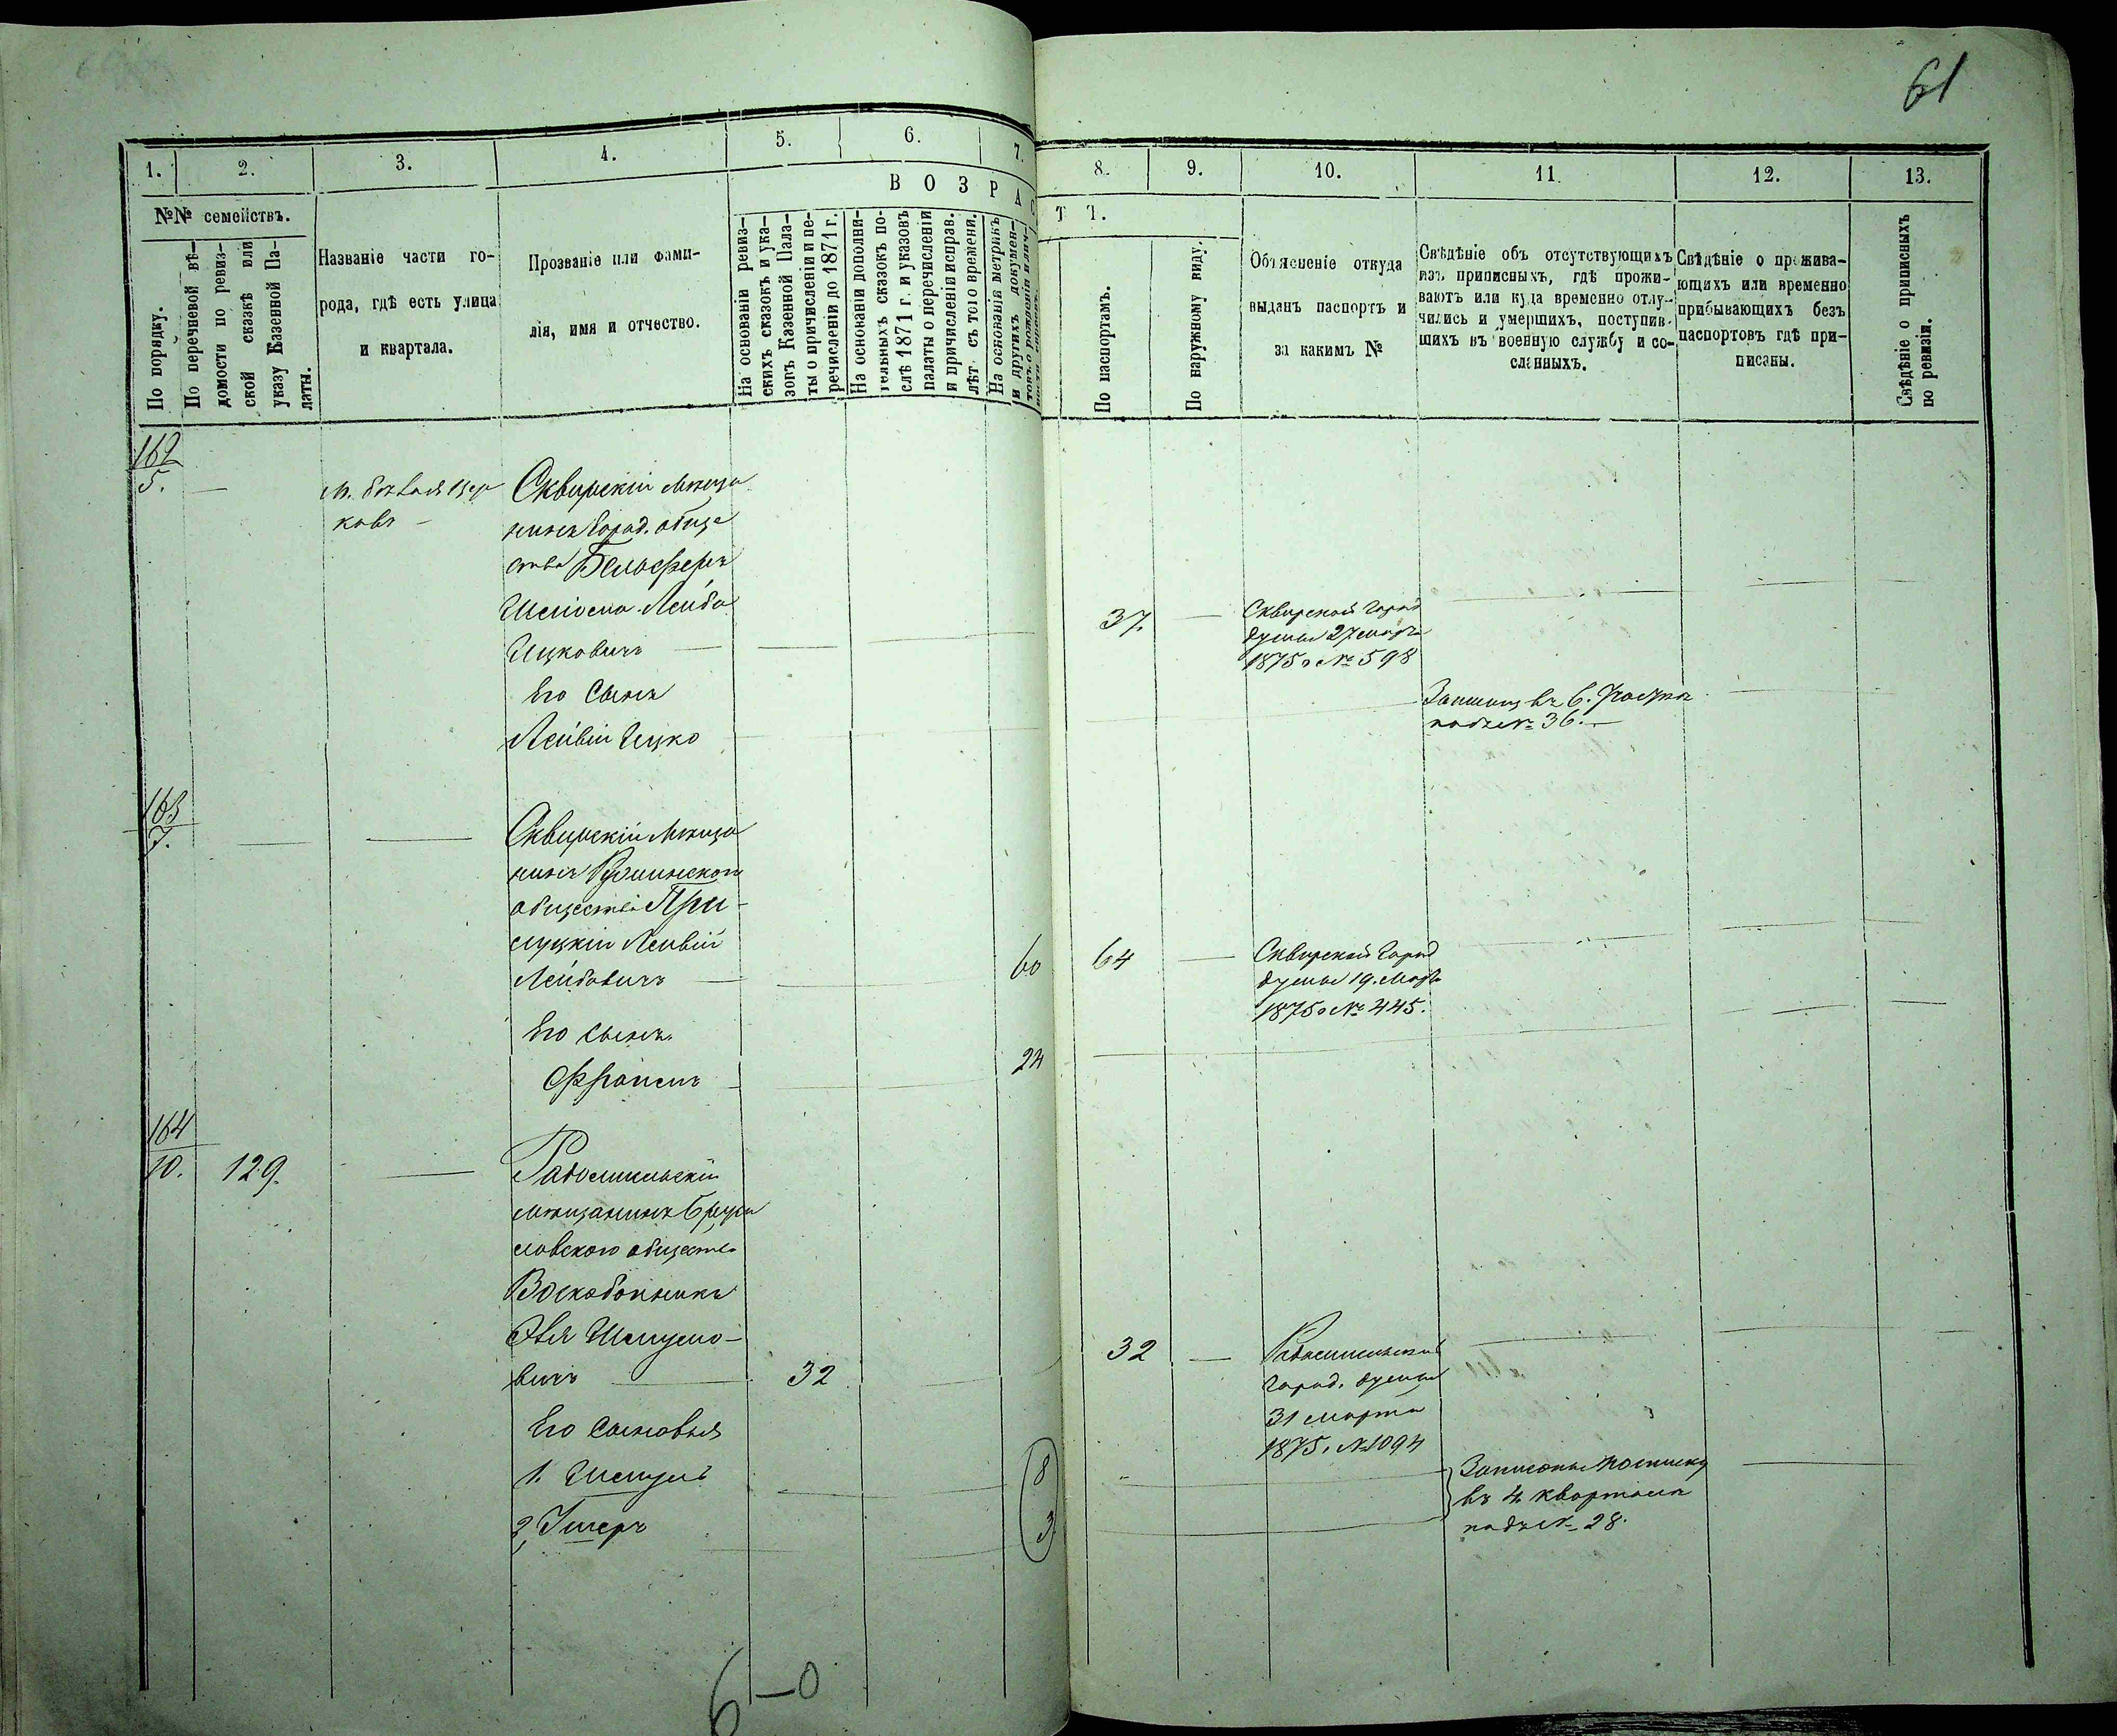 61
1. 2. 3. 4. 5. 6. 7. 8. 9. 10. 11. 12. 13.
№№ семействъ.
По порядку.
По перечневой вѣ-
домости по ревиз-
ской сказкѣ или
указу Казенной Па-
латы.
Названіе части го-
рода, гдѣ есть улица
и квартала.
Прозваніе или фами-
лія, имя и отчество.
ВОЗРАСТ Т.
На основаніи ревиз-
скихъ сказокъ и ука-
зовъ Казенной Пала-
ты о причисленіи и пе-
речисленіи до 1871 г.
На основаніи дополни-
тельныхъ сказокъ по-
слѣ 1871 г. и указовъ
палаты о перечисленіи
и причисленіи исправ.
лѣт. съ того времени.
На основаніи метрикъ
и другихъ докумен-
товъ о рожденіи и лич-
По паспортамъ.
По наружному виду.
Объясненіе откуда
выданъ паспортъ и
за какимъ №
Свѣдѣніе объ отсутствующихъ
изъ приписныхъ, гдѣ прожи-
ваютъ или куда временно отлу-
чились и умершихъ, поступив-
шихъ въ военную службу и со-
сланныхъ.
Свѣдѣніе о прожива-
ющихъ или временно
прибывающихъ безъ
паспортовъ гдѣ при-
писаны.
Свѣдѣніе о приписныхъ
по ревизіи.
162
5.
м. Бѣлая Цер
ковь
Сквирскій мѣща
нинъ Город. обще
ства
Лейба
Ицковичъ
37.
Сквирской Город
думы 27 марта
1875 № 598
Его сынъ
Лейвій Ицко
подъ № 36.
163
7.
Сквирскій мѣща
нинъ Ружинскаго
общества При-
луцкій Лейвій
Лейбовичъ
60
64
Сквирской Город
думы 19 Марта
1875 № 445.
Его сынъ
Ефроимъ
24
164
10.
129.
Радомысльскій
мѣщанинъ Бруси
ловскаго общества
Воскобойникъ
Шмулю-
вичъ
32
32
Радомысльской
Город. думы
31 марта
1875, № 1094
Его сыновья
1. Шмуль
8
2, Ушеръ
3
Записаны
въ 4 кварталѣ
подъ № 28.
6-0